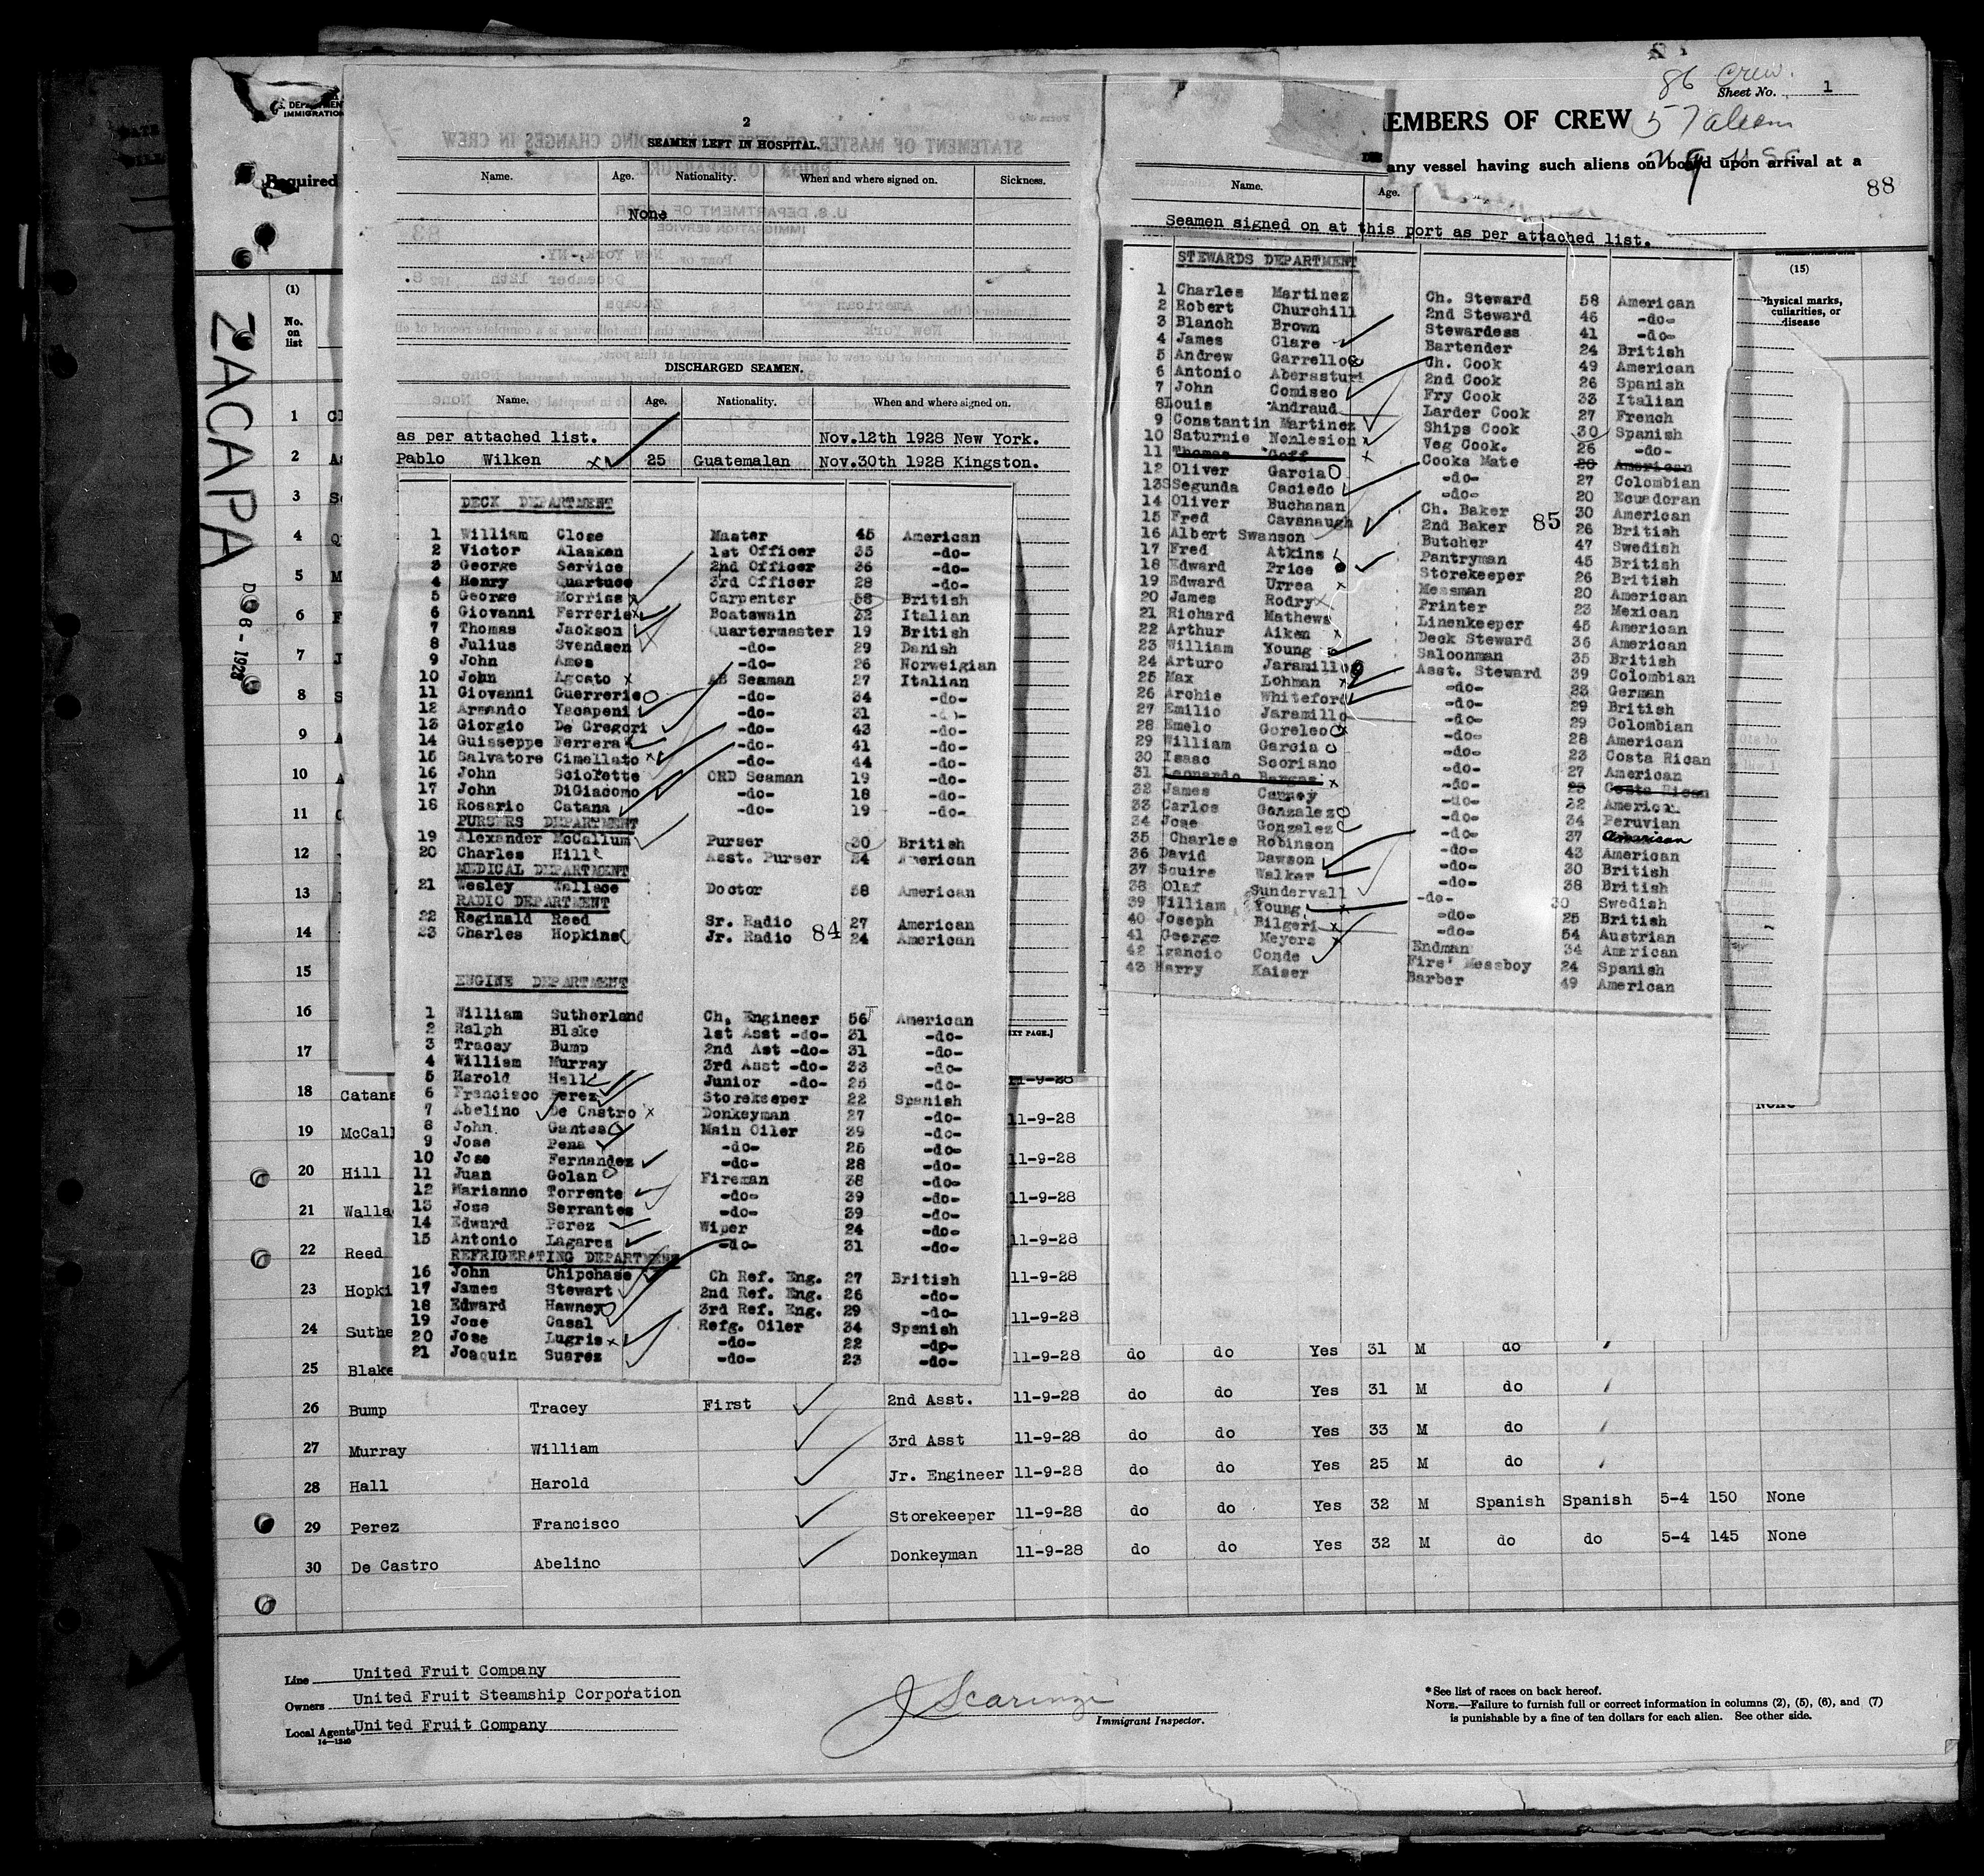 86 Crew.
Sheet No. 1
EMBERS OF CREW
57 aliens
Required
any vessel having such aliens on board upon arrival at a
88
ZACAPA
1928
2
SEAMEN LEFT IN HOSPITAL.
Name. Age. Nationality. When and where signed on. Sickness.
None
DISCHARGED SEAMEN.
Name. Age. Nationality. When and where signed on.
as per attached list. Nov.12th 1928 New York.
Pablo Wilken 25 Guatemalan Nov.30th 1928 Kingston.
DECK DEPARTMENT
1 William Close Master 45 American
2 Victor Alasken 1st Officer 35 -do-
3 George Service 2nd Officer 36 -do-
4 Henry Quartuce 3rd Officer 28 -do-
5 George Morriss Carpenter 58 British
6 Giovanni Ferreria Boatswain 32 Italian
7 Thomas Jackson Quartermaster 19 British
8 Julius Svendsen -do- 29 Danish
9 John Ames -do- 26 Norweigian
10 John Agosto AB Seaman 27 Italian
11 Giovanni Guerrerio -do- 34 -do-
12 Armando Yacapeni -do- 31 -do-
13 Giorgio De Gregori -do- 43 -do-
14 Guisseppe Ferrera -do- 41 -do-
15 Salvatore Cimellato -do- 44 -do-
16 John Sciolette ORD Seaman 19 -do-
17 John DiGiacomo -do- 18 -do-
18 Rosario Catana -do- 19 -do-
PURSERS DEPARTMENT
19 Alexander McCallum Purser 30 British
20 Charles Hill Asst. Purser 24 American
MEDICAL DEPARTMENT
21 Wesley Wallace Doctor 58 American
RADIO DEPARTMENT
22 Reginald Reed Sr. Radio 27 American
23 Charles Hopkins Jr. Radio 24 American
84
ENGINE DEPARTMENT
1 William Sutherland Ch. Engineer 56 American
2 Ralph Blake 1st Asst -do- 31 -do-
3 Tracey Bump 2nd Ast -do- 31 -do-
4 William Murray 3rd Asst -do- 33 -do-
5 Harold Hall Junior -do- 25 -do-
6 Francisco Perez Storekeeper 22 Spanish
7 Abelino De Castro Donkeyman 27 -do-
8 John Gantes Main Oiler 39 -do-
9 Jose Pena -do- 25 -do-
10 Jose Fernandez -do- 28 -do-
11 Juan Golan Fireman 38 -do-
12 Marianno Torrente -do- 39 -do-
13 Jose Serrantes -do- 39 -do-
14 Edward Perez Wiper 24 -do-
15 Antonio Lagares -do- 31 -do-
REFRIGERATING DEPARTMENT
16 John Chipchase Ch Ref. Eng. 27 British
17 James Stewart 2nd Ref. Eng. 26 -do-
18 Edward Hawney 3rd Ref. Eng. 29 -do-
19 Jose Casal Refg. Oiler 34 Spanish
20 Jose Lugris -do- 22 -dp-
21 Joaquin Suarez -do- 23 -do-
Name. Age.
Seamen signed on at this port as per attached list.
STEWARDS DEPARTMENT
1 Charles Martinez Ch. Steward 58 American
2 Robert Churchill 2nd Steward 46 -do-
3 Blanch Brown Stewardess 41 -do-
4 James Clare Bartender 24 British
5 Andrew Garrello Ch. Cook 49 American
6 Antonio Aberasturi 2nd Cook 26 Spanish
7 John Comisso Fry Cook 33 Italian
8 Louis Andraud Larder Cook 27 French
9 Constantin Martinez Ships Cook 30 Spanish
10 Saturnie Nonlesion Veg Cook. 26 -do-
11 Thomas Goff Cooks Mate 20 American
12 Oliver Garcia -do- 27 Colombian
13 SSegunda Caciedo -do- 20 Ecuadoran
14 Oliver Buchanan Ch. Baker 30 American
15 Fred Cavanaugh 2nd Baker 26 British
85
16 Albert Swanson Butcher 47 Swedish
17 Fred Atkins Pantryman 45 British
18 Edward Price Storekeeper 26 British
19 Edward Urrea Messman 20 American
20 James Rodry Printer 23 Mexican
21 Richard Mathews Linenkeeper 45 American
22 Arthur Aiken Deck Steward 36 American
23 William Young Saloonman 35 British
24 Arturo Jaramillo Asst. Steward 39 Colombian
25 Max Lohman -do- 23 German
26 Archie Whiteford -do- 29 British
27 Emilio Jaramillo -do- 29 Colombian
28 Emelo Gorelco -do- 28 American
29 William Garcia -do- 23 Costa Rican
30 Isaac Scoriano -do- 27 American
31 Leonardo Bargas -do- 23 Costa Rican
32 James Canney -do- 22 American
33 Carlos Gonzalez -do- 34 Peruvian
34 Jose Gonzalez -do- 37 American
35 Charles Robinson -do- 43 American
36 David Dawson -do- 30 British
37 Squire Walker -do- 38 British
38 Olaf Sundervall -do- 30 Swedish
39 William Young -do- 25 British
40 Joseph Bilgeri -do- 54 Austrian
41 George Meyers Endman 34 American
42 Igancio Conde Fire' Messboy 24 Spanish
43 Harry Kaiser Barber 49 American
(15)
Physical marks,
culiarities, or
disease
(1)
No.
on
list
1
2
3
4
5
6
7
8
9
10
11
12
13
14
15
16
17
18 Catana 11-9-28 None
19 McCall 11-9-28
20 Hill 11-9-28
21 Walla 11-9-28
22 Reed 11-9-28
23 Hopki 11-9-28
24 Suthe 11-9-28
25 Blake 11-9-28 do do Yes 31 M do
26 Bump Tracey First 2nd Asst. 11-9-28 do do Yes 31 M do
27 Murray William 3rd Asst 11-9-28 do do Yes 33 M do
28 Hall Harold Jr. Engineer 11-9-28 do do Yes 25 M do
29 Perez Francisco Storekeeper 11-9-28 do do Yes 32 M Spanish Spanish 5-4 150 None
30 De Castro Abelino Donkeyman 11-9-28 do do Yes 32 M do do 5-4 145 None
Line United Fruit Company
Owners United Fruit Steamship Corporation
Local Agents United Fruit Company
14-1240
J Scarinzi
Immigrant Inspector.
*See list of races on back hereof.
NOTE.—Failure to furnish full or correct information in columns (2), (5), (6), and (7)
is punishable by a fine of ten dollars for each alien. See other side.